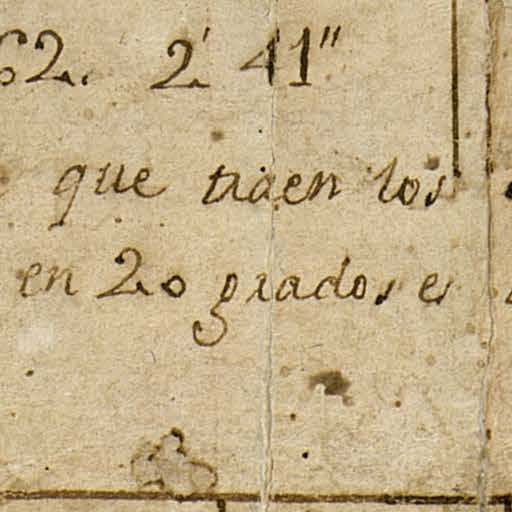 62. 2' 41"
que traen los
en 20 grados es